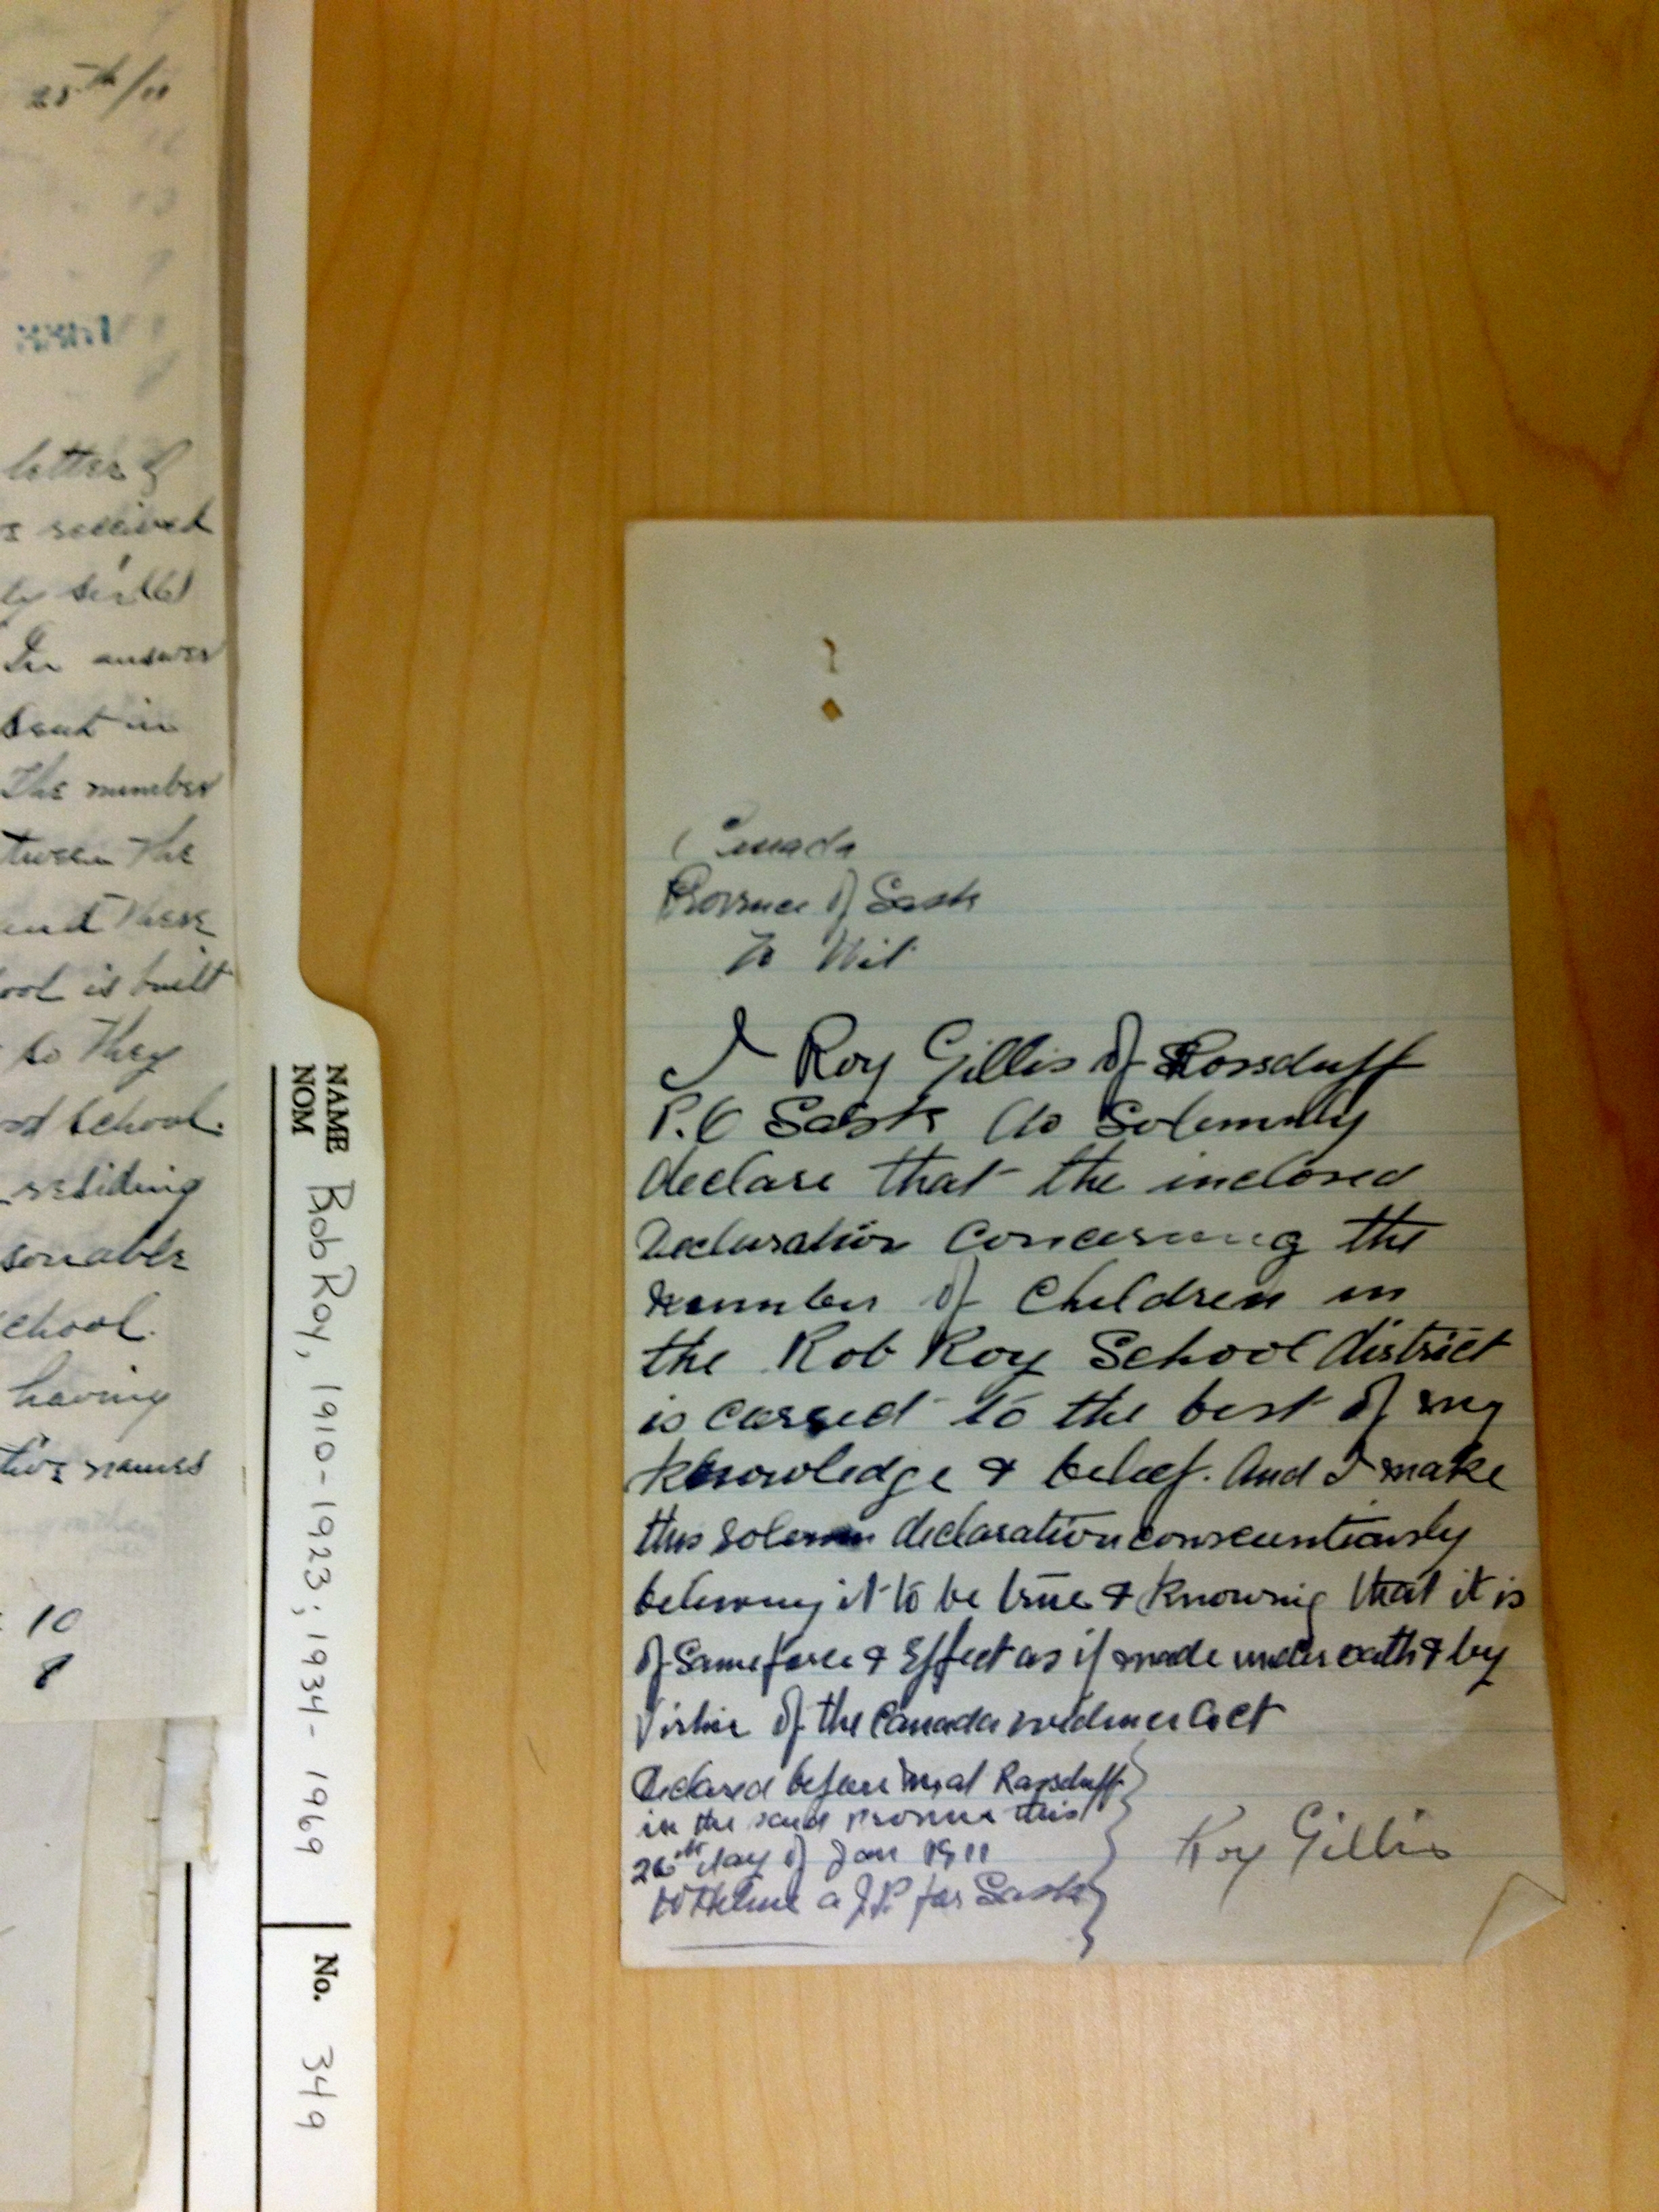 25th/10
letter of
received
In answer
sent in
The number
tween the
and there
ool is built
to They
School.
residing
sonable
chool.
having
tive names
10
8
NAME Bob Roy, 1910-1923; 1934-1969
NOM
No. 349
Canada
Province of Sask
To Wit
I Roy Gillis of Rossduff
P.O Sask do Solemnly
declare that the inclosed
Declaration concerning the
number of Children in
the Rob Roy School district
is correct to the best of my
knowledge & belief. And I make
this solemn declaration conscientiously
believing it to be true & knowing that it is
of Same force & Effect as if made under oath & by
Virtue of the Canada evidence Act
Declared before me at Rossduff
in the said province this
26th day of Jan 1911
a J.P for Sask
Roy Gillis